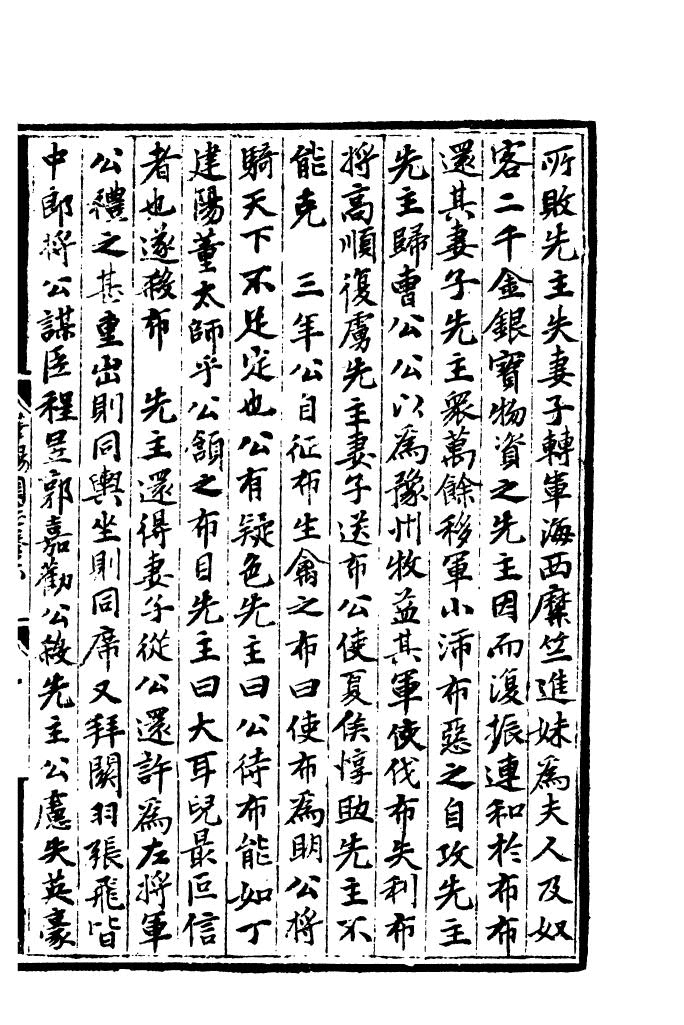 所敗先主失妻子轉軍海西糜竺進妹為夫人及奴
客二千金銀寶物資之先主因而復振連和於布布
還其妻子先主衆萬餘移軍小沛布惡之自攻先主
先主歸曹公公以為豫州牧益其軍使伐布失利布
將高順復虜先主妻子送布公使夏侯惇助先主不
能克　三年公自征布生禽之布曰使布為明公將
騎天下不足定也公有疑色先主曰公待布能如丁
建陽董太師乎公頷之布目先主曰大耳兒最叵信
者也遂殺布　先主還得妻子從公還許為左將軍
公禮之甚重出則同輿坐則同席又拜關羽張飛皆
中郎將公謀臣程昱郭嘉勸公殺先主公慮失英豪